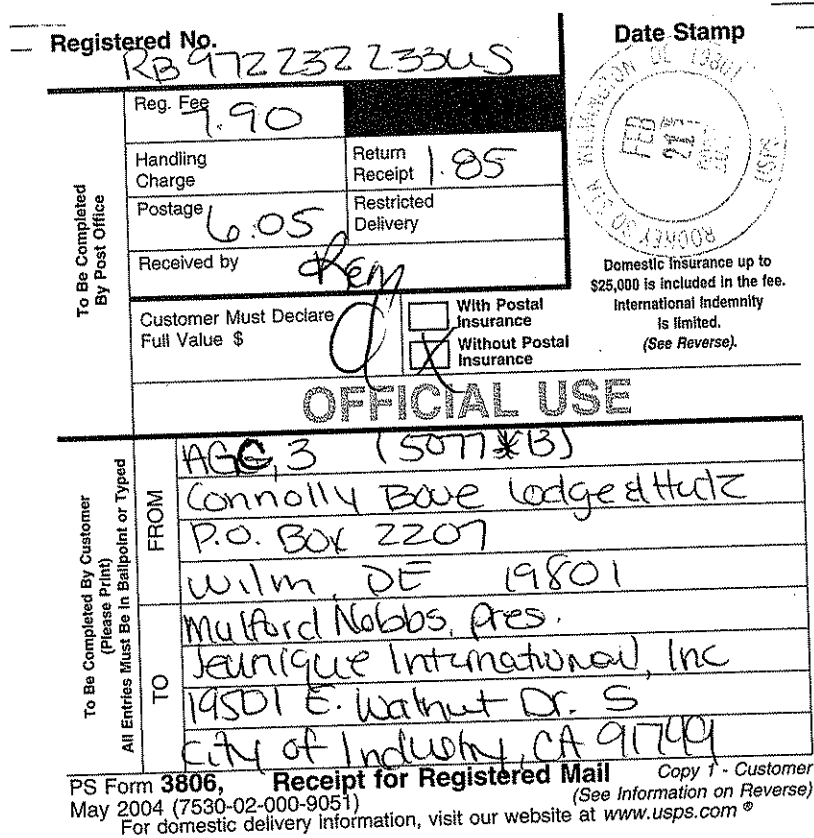 Registered No.
RB 972232233US
Date Stamp
To Be Completed
By Post Office
Reg. Fee 7.90
Handling
Charge
Return
Receipt 1.85
Postage 6.05
Restricted
Delivery
Received by
Domestic Insurance up to
$25,000 is included in the fee.
International Indemnity
is limited.
(See Reverse).
Customer Must Declare
Full Value $
With Postal
Insurance
X Without Postal
Insurance
OFFICIAL USE
WILMINGTON DE 19801
FEB
RODNEY SQ STA
USPS
To Be Completed By Customer
(Please Print)
All Entries Must Be in Ballpoint or Typed
FROM
AGC, 3 (5077*13)
Connolly Bove Lodge & Hutz
P.O. Box 2207
Wilm, DE 19801
TO
Mulford Nobbs, Pres.
Jeunique International, Inc
19501 E. Walnut Dr. S
City of Industry, CA 91749
PS Form 3806, Receipt for Registered Mail Copy 1 - Customer
May 2004 (7530-02-000-9051) (See Information on Reverse)
For domestic delivery information, visit our website at www.usps.com ®